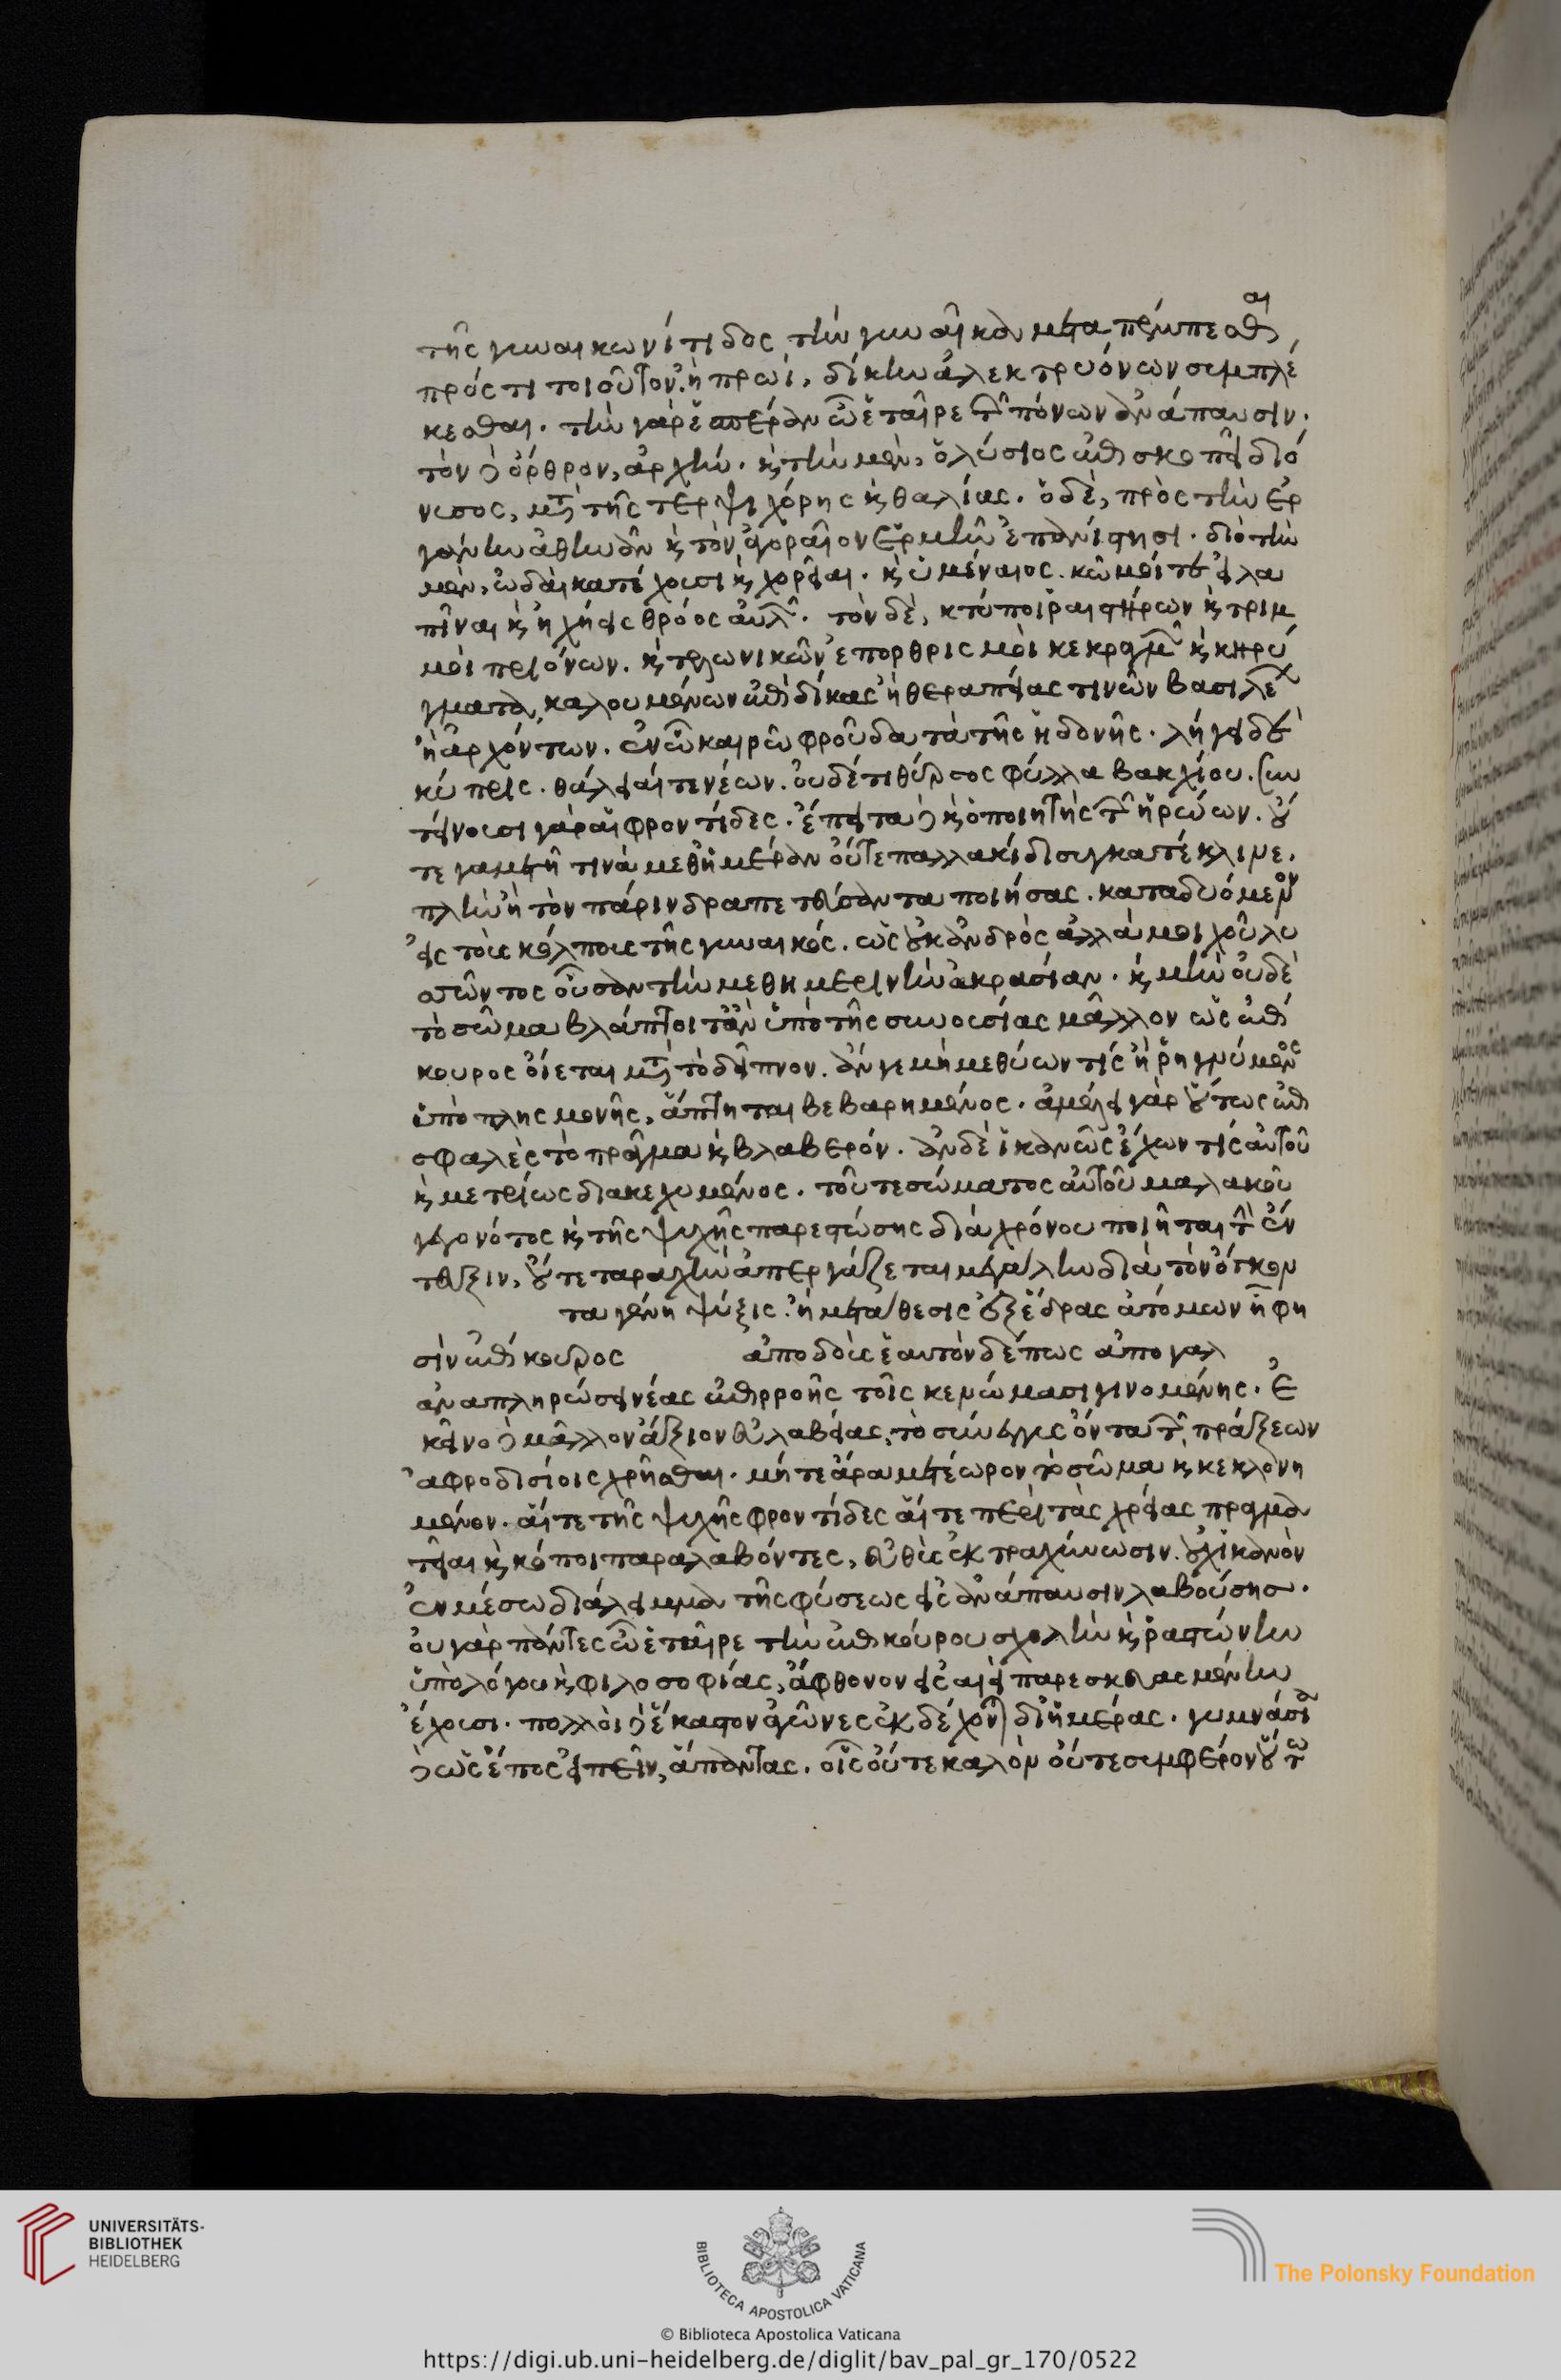 τῆς γυναικωνίτιδος τὴν γυναῖκα μεταπέμπεσθαι,
πρός τι τοιοῦτον. ἢ πρωὶ, δίκην ἀλεκτρυόνων συμπλέ
κεσθαι. τὴν γὰρ ἑσπέραν ὦ ἑταῖρε τῶν πόνων ἀνάπαυσιν.
τὸν δὲ ὄρθρον, ἀρχήν. καὶ τὴν μὲν, ὁ λύσιος ἐπισκοπεῖ διό
νυσος, μετὰ τῆς τερψιχόρης καὶ θαλίας. ὁ δὲ, πρὸς τὴν ἐρ
γάνην ἀθηνᾶν καὶ τὸν ἀγοραῖον ἑρμῆν ἐπανίστησι. διὸ τὴν
μὲν, ὠδαὶ κατέχουσι καὶ χορεῖαι. καὶ ὑμέναιος. κῶμοί τε εἰλα
πίναι καὶ ἠχήεις θρόος αὐλῶν. τὸν δὲ, κτύποι ῥαιστήρων καὶ τριμ
μοὶ πριόνων. καὶ τελωνικῶν ἐπορθρισμοὶ κεκραγμῶν καὶ κηρύ
γματα, καλουμένων ἐπὶ δίκας ἢ θεραπείας τινῶν βασιλέων
ἢ ἀρχόντων. ἐν ᾧ καιρῷ φροῦδα τὰ τῆς ἡδονῆς. λήγει δὲ
κύπρις. θάλειαί τε νέων. οὐδέ τι θύρσος φύλλα βακχίου. συν
τείνουσι γὰρ αἱ φροντίδες. ἔπειτα δὲ καὶ ὁ ποιητὴς τῶν ἡρώων. οὔ
τε γαμετῇ τινὰ μεθ' ἡμέραν οὔτε παλλακίδι συγκατέκλινε.
πλὴν ἢ τὸν πάριν δραπετεύσαντα ποιήσας. καταδυόμενον
εἰς τοὺς κόλπους τῆς γυναικός. ὡς οὐκ ἀνδρὸς ἀλλὰ μοιχοῦ λυ
σσῶντος οὖσαν τὴν μεθημερινὴν ἀκρασίαν. καὶ μὴν οὐδὲ
τὸ σῶμα βλάπτοιτ' ἂν ὑπὸ τῆς συνουσίας μᾶλλον ὡς ἐπί
κουρος οἴεται μετὰ τὸ δεῖπνον. ἄν γε μὴ μεθύων τίς ἢ ῥηγνύμενος
ὑπὸ πλησμονῆς, ἅπτηται βεβαρημένος. ἀμέλει γὰρ οὕτως ἐπι
σφαλὲς τὸ πρᾶγμα καὶ βλαβερόν. ἂν δὲ ἱκανῶς ἔχων τίς αὐτοῦ
καὶ μετρίως διακεχυμένος. τοῦ τε σώματος αὐτοῦ μαλακοῦ
γεγονότος καὶ τῆς ψυχῆς παρεστώσης διὰ χρόνου ποιῆται τὴν ἔν
τευξιν, οὔτε ταραχὴν ἀπεργάζεται μεγάλην διὰ τὸν ὄγκον
τα γένη ψύξις. ἢ μετάθεσις ἐξ ἕδρας ἀτόμων ᾗ φη
σὶν ἐπίκουρος ἀποδοὺς ἑαυτὸν δέ πως ἀπο γαλ
ἀναπληρώσει νέας ἐπιρροῆς τοῖς κενώμασι γινομένης. ἐ
κεῖνο δὲ μᾶλλον ἄξιον εὐλαβείας, τὸ σύνεγγυς ὄντα τῶν πράξεων
ἀφροδισίοις χρῆσθαι. μήτε ἄρα μετέωρον τὸ σῶμα καὶ κεκλονη
μένον. αἵ τε τῆς ψυχῆς φροντίδες αἵ τε περὶ τὰς χρείας πραγμα
τεῖαι καὶ κόποι παραλαβόντες, εὐθὺς ἐκτραχύνωσιν. οὐχ ἱκανὸν
ἐν μέσῳ διάλειμμα τῆς φύσεως εἰς ἀνάπαυσιν λαβούσης.
οὐ γὰρ πάντες ὦ ἑταῖρε τὴν ἐπικούρου σχολὴν καὶ ῥαστώνην
ὑπὸ λόγου καὶ φιλοσοφίας, ἄφθονον εἰς αἰεὶ παρεσκευασμένην
ἔχουσι. πολλοὶ δὲ ἕκαστον ἀγῶνες ἐκδέχονται δι' ἡμέρας. γυμνάσια
δὲ ὡς ἔπος εἰπεῖν, ἅπαντας. οἷς οὔτε καλὸν οὔτε συμφέρον οὕτω
UNIVERSITÄTS-
BIBLIOTHEK
HEIDELBERG
BIBLIOTECA APOSTOLICA VATICANA
The Polonsky Foundation
© Biblioteca Apostolica Vaticana
https://digi.ub.uni-heidelberg.de/diglit/bav_pal_gr_170/0522